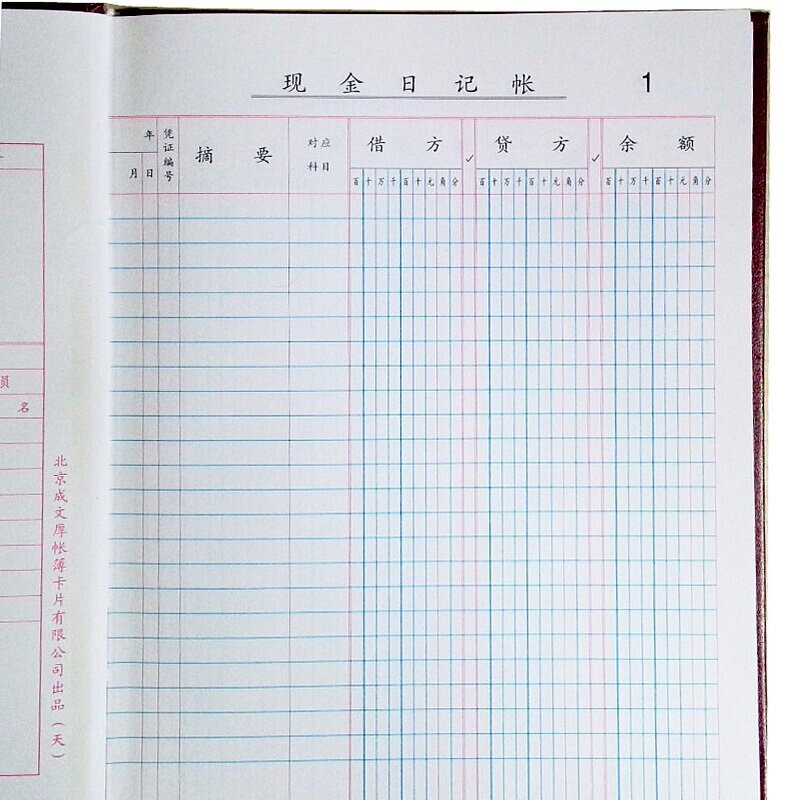 现金日记帐 1
年 凭证编号 摘要 对应科目 借方 ✓ 贷方 ✓ 余额
月 日 百十万千百十元角分 百十万千百十元角分 百十万千百十元角分
员
名
北京成文厚帐簿卡片有限公司出品(天)